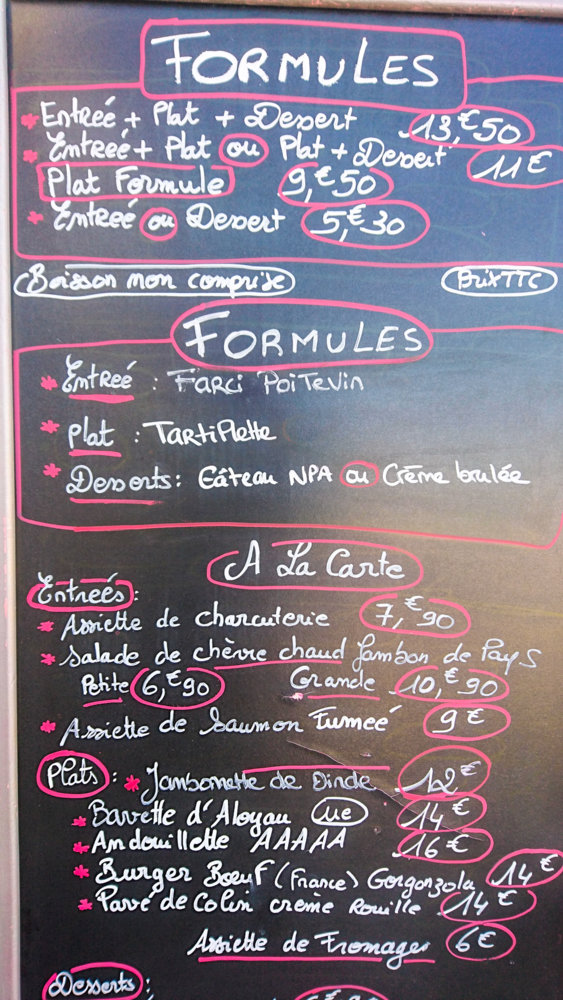 FORMULES
* Entreé + Plat + Dessert 13,€50
* Entreé + Plat ou Plat + Dessert 11€
Plat Formule 9,€50
* Entreé ou Dessert 5,€30
Boisson non comprise Prix TTC
FORMULES
* Entreé : Farci Poitevin
* Plat : Tartiflette
* Desserts : Gâteau NPA ou Crème brulée
A La Carte
Entreés :
* Assiette de charcuterie 7,€90
* Salade de chèvre chaud Jambon de Pays
Petite 6,€90 Grande 10,€90
* Assiette de Saumon Fumeé 9€
Plats : * Jambonette de Dinde 12€
* Bavette d'Aloyau UE 14€
* Andouillette AAAAA 16€
* Burger Boeuf (France) Gorgonzola 14€
* Pavé de Colin crème Rouille 14€
Assiette de Fromages 6€
Desserts :